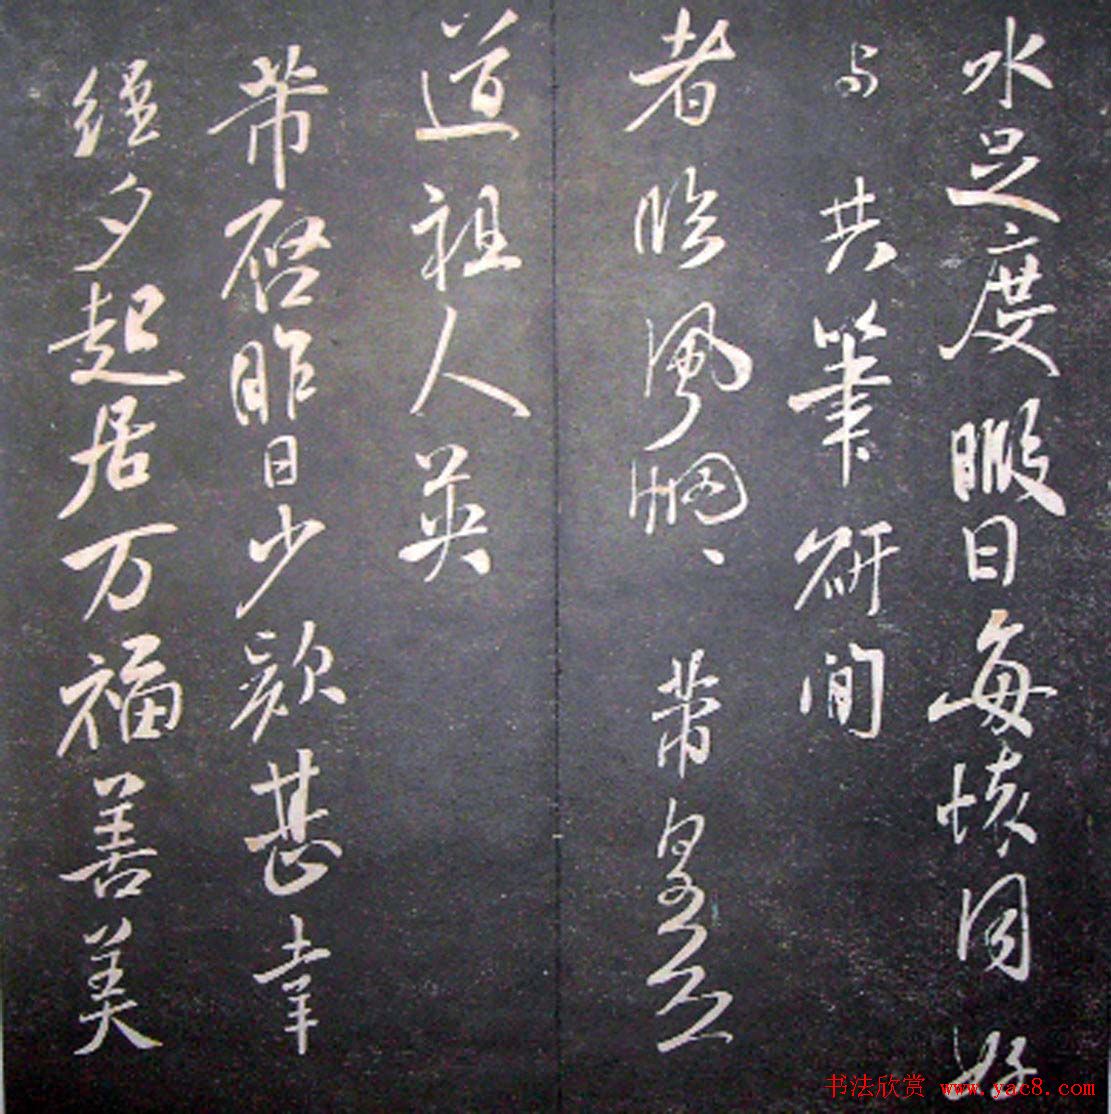 水足度暇日每懷同好
与共筆研間
者臨風惘惘芾皇恐
道祖人英
芾啓昨日少款甚幸
經夕起居万福善美
书法欣赏 www.yac8.com